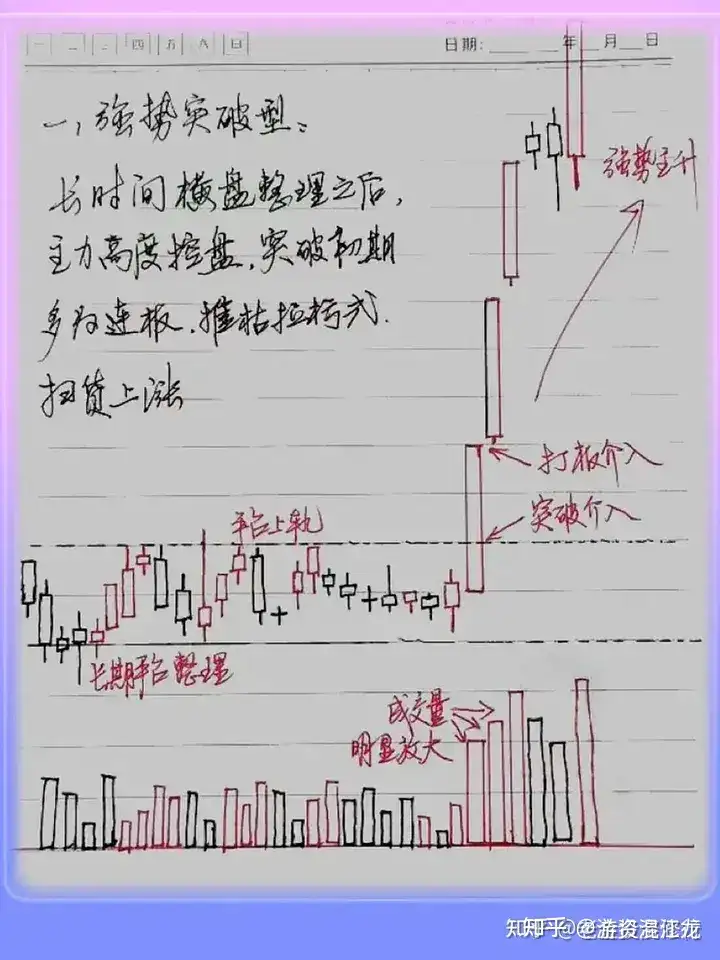 一 二 三 四 五 六 日
日期: 年 月 日
一,强势突破型:
长时间横盘整理之后,
主力高度控盘,突破初期
多为连板,摧枯拉朽式
扫货上涨
强势主升
打板介入
突破介入
平台上轨
长期平台整理
成交量
明显放大
知乎 @游资混江龙